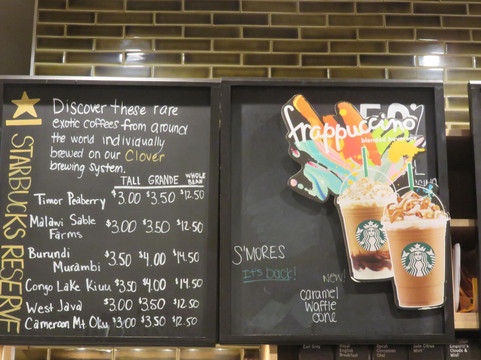 STARBUCKS RESERVE
Discover these rare
exotic coffees from around
the world individually
brewed on our Clover
brewing system.
TALL GRANDE WHOLE BEAN
Timor Peaberry $3.00 $3.50 $12.50
Malawi Sable
Farms $3.00 $3.50 $12.50
Burundi
Murambi $3.50 $4.00 $14.50
Congo Lake Kivu $3.50 $4.00 $14.50
West Java $3.00 $3.50 $12.50
Cameroon Mt Oku $3.00 $3.50 $12.50
frappuccino
blended beverage
S'MORES
It's back!
NOW!
caramel
waffle
cone
Earl Grey